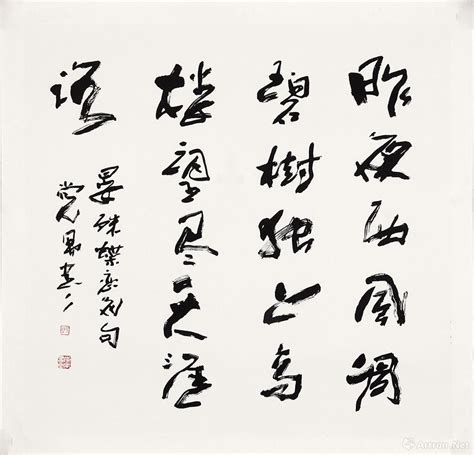 昨夜西風凋
碧樹独上高
楼望尽天涯
路
晏殊蝶恋花句
Artron.Net